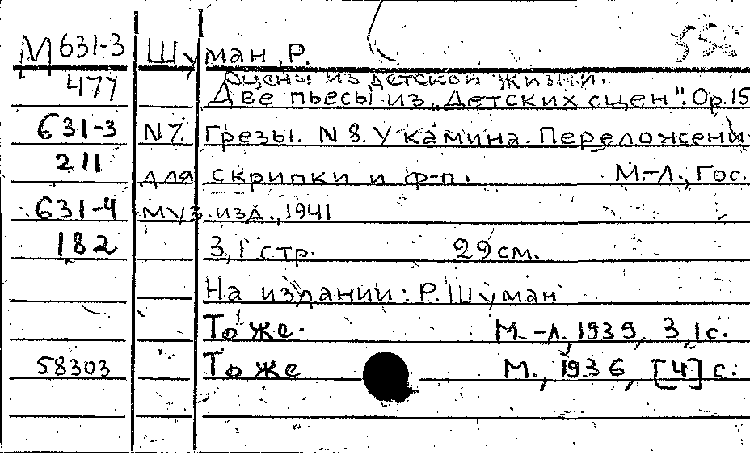 М 631-3 Шуман, Р.
477 Сцены из детской жизни.
Две пьесы из „Детских сцен". Ор.15
631-3 N7. Грезы. N 8. У камина. Переложени
211 для скрипки и ф-п. М-Л., Гос.
631-4 муз. изд., 1941
182 3,1 стр. 29 см.
На издании: Р. Шуман
То же. М.-Л, 1939, 3,1 с.
58303 То же М., 1936, [4] с.